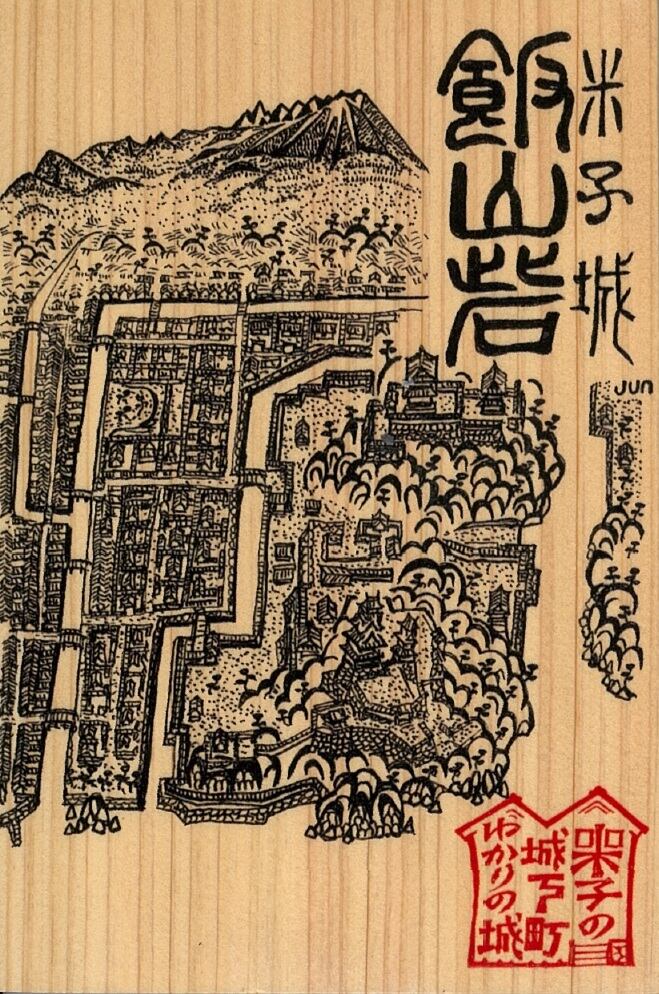 米子城
飯山砦
JUN
米子の
城下町
ゆかりの城